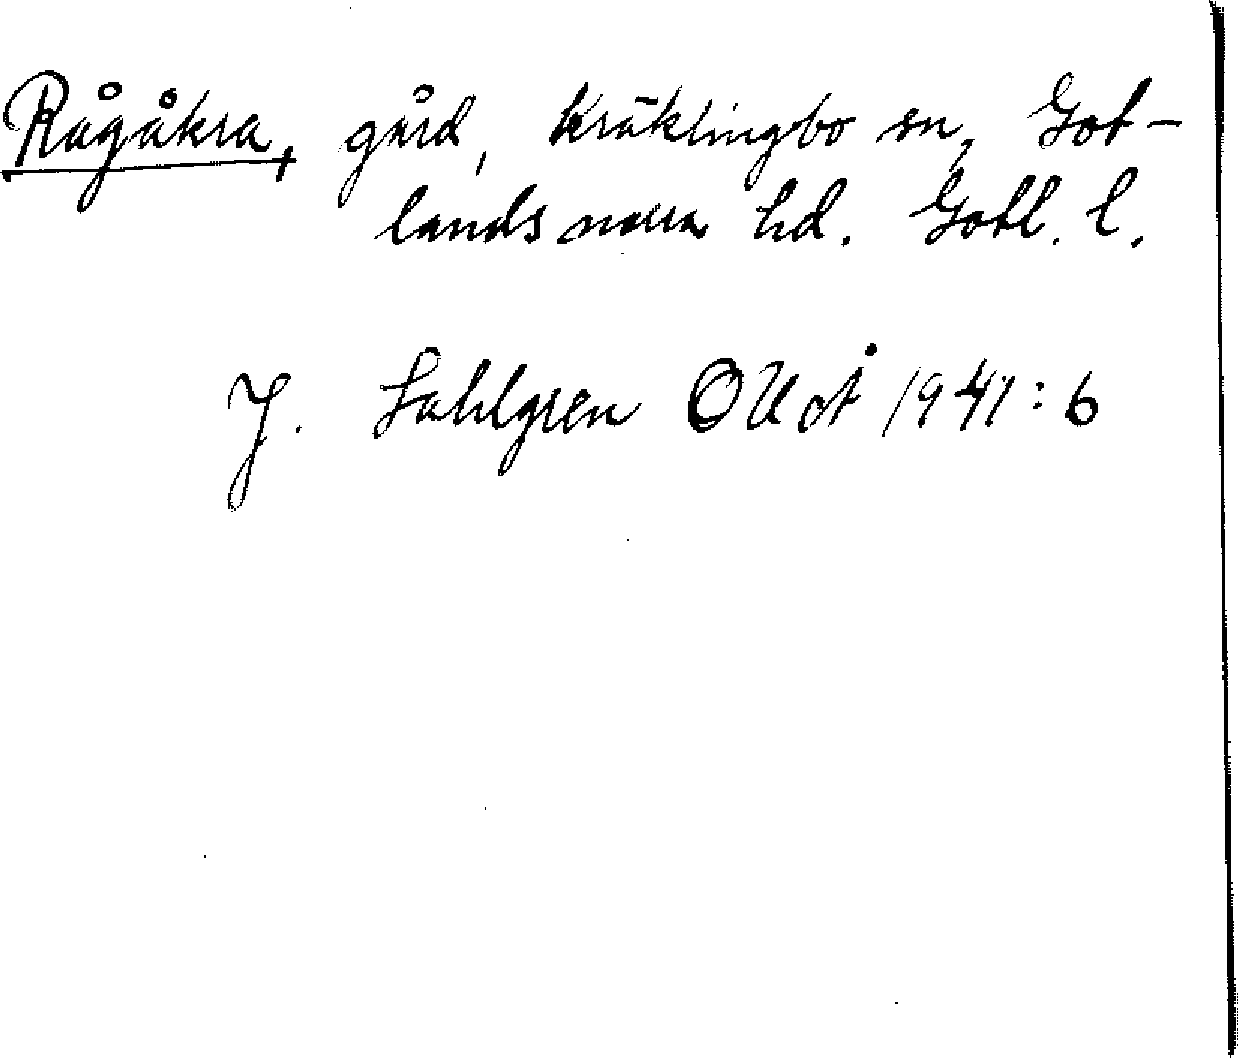 Rågåkra, gård, Kräklingbo sn, Got-
lands norra hd. Gotl. l.
J. Sahlgren OUoÅ 1941:6